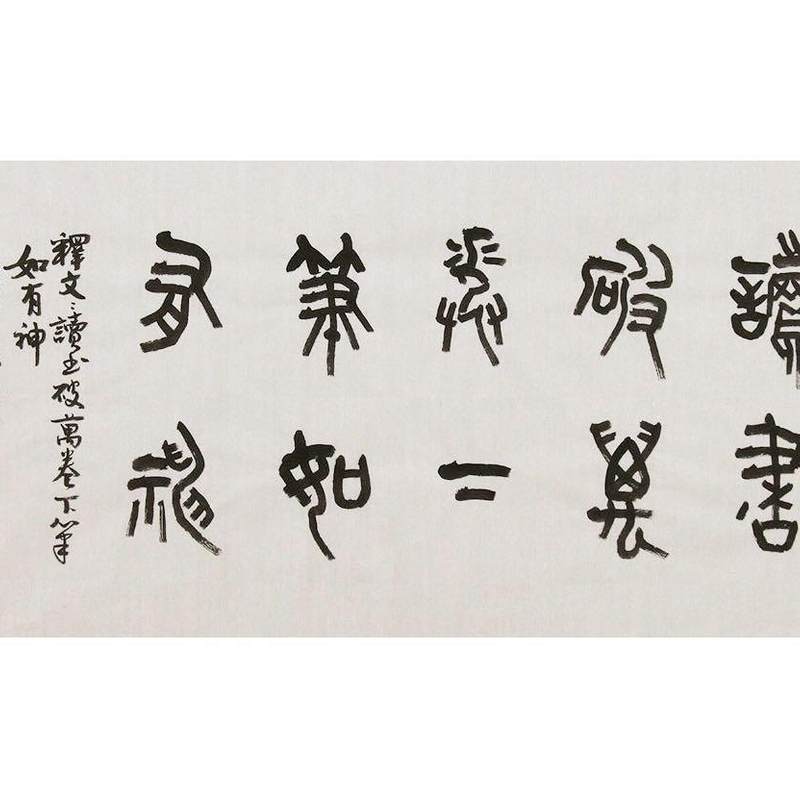 讀書
破萬
卷下
筆如
有神
釋文：讀书破萬卷下筆
如有神